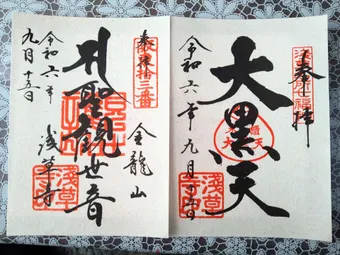 奉拝
大黒天
令和六年九月十五日
浅草寺
坂東第拾三番
聖観世音
金龍山
浅草寺
令和六年
九月十五日
浅草